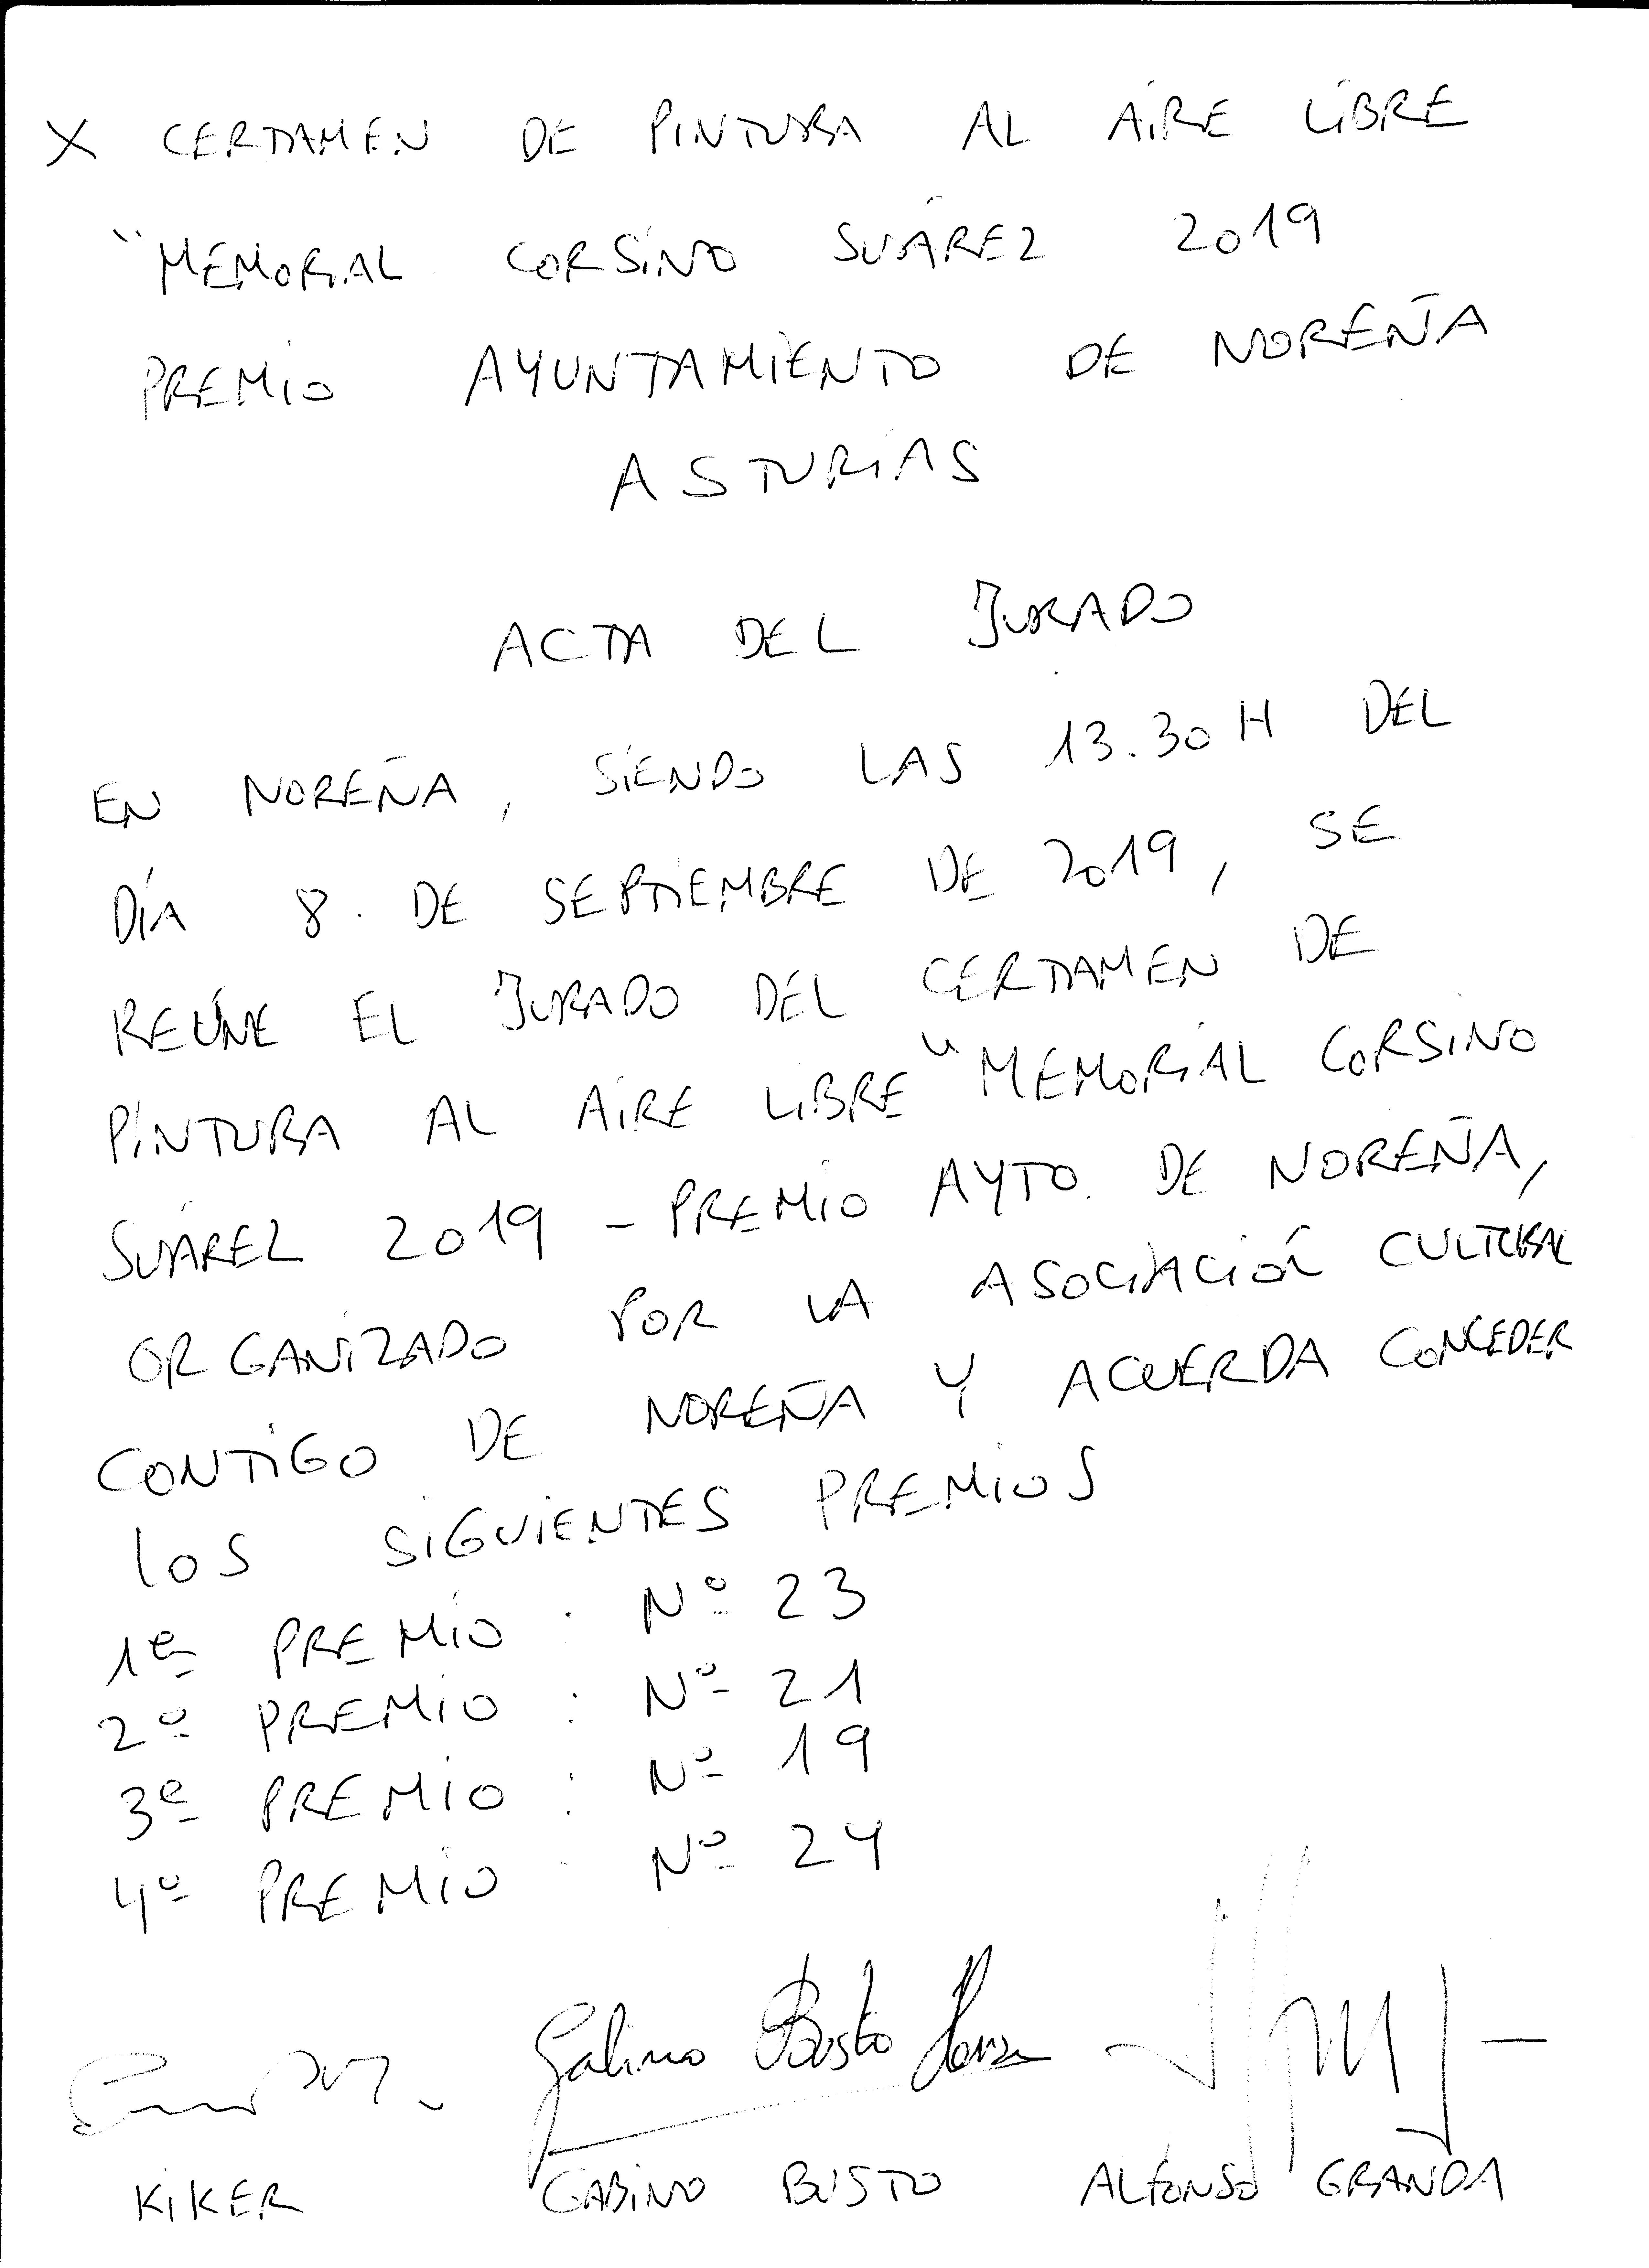 X CERTAMEN DE PINTURA AL AIRE LIBRE
"MEMORIAL CORSINO SUÁREZ 2019
PREMIO AYUNTAMIENTO DE NOREÑA
ASTURIAS
ACTA DEL JURADO
EN NOREÑA, SIENDO LAS 13.30 H DEL
DÍA 8 DE SEPTIEMBRE DE 2019, SE
REÚNE EL JURADO DEL CERTAMEN DE
PINTURA AL AIRE LIBRE "MEMORIAL CORSINO
SUÁREZ 2019 - PREMIO AYTO. DE NOREÑA,
ORGANIZADO POR LA ASOCIACIÓN CULTURAL
CONTIGO DE NOREÑA Y ACUERDA CONCEDER
LOS SIGUIENTES PREMIOS
1er PREMIO : Nº 23
2º PREMIO : Nº 21
3er PREMIO : Nº 19
4º PREMIO : Nº 24
Gabino Busto
KIKER GABINO BUSTO ALFONSO GRANDA